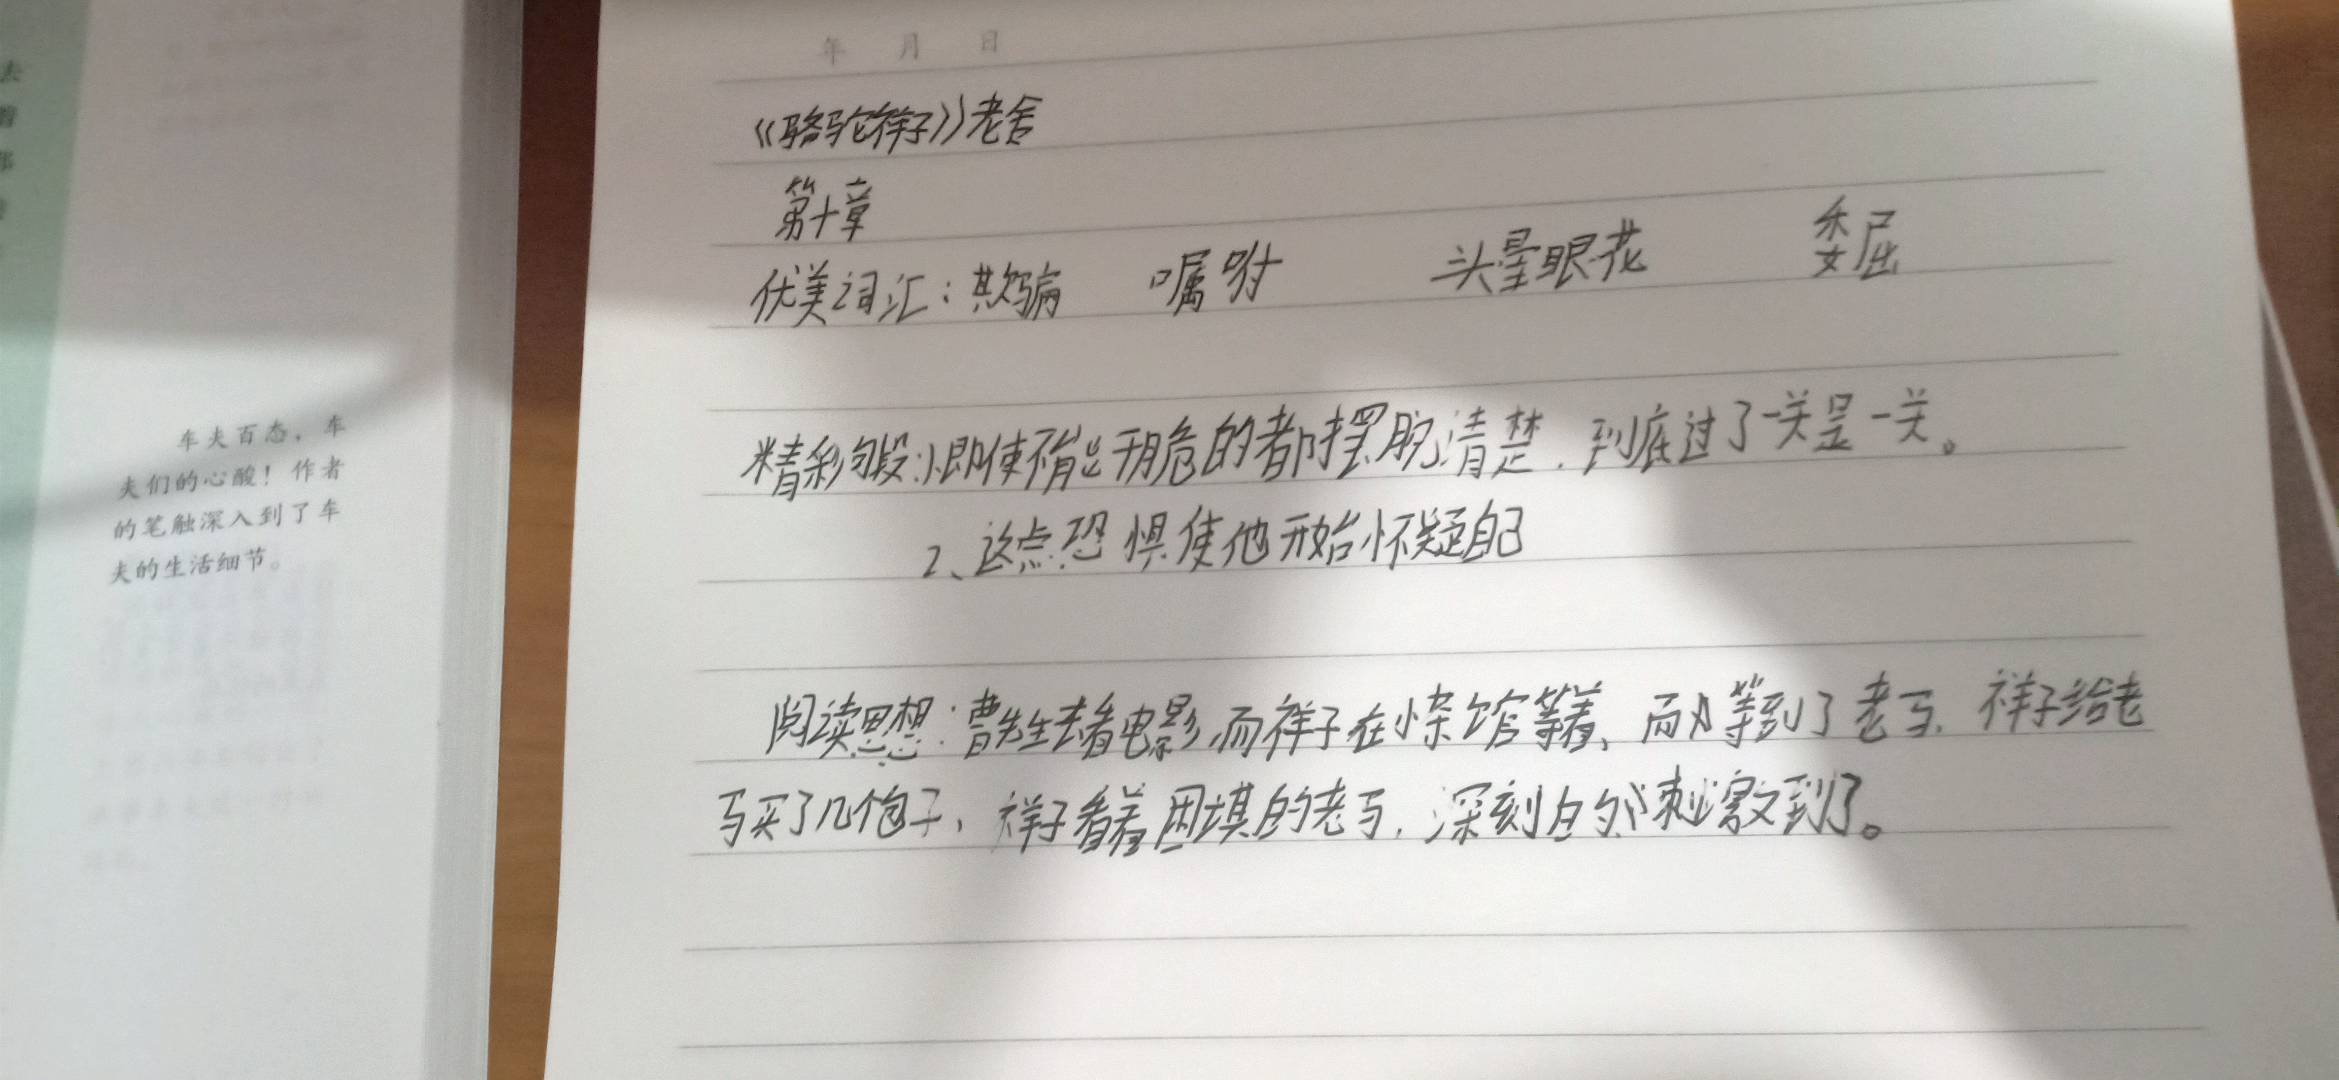 去
着
那
年 月 日
《骆驼祥子》老舍
第十章
优美词汇：欺骗 嘱咐 头晕眼花 委屈
精彩句段：1、即使不能把所有的都摆脱清楚，到底过了一关是一关。
2、这点恐惧使他开始怀疑自己
阅读思想：曹先生去看电影，而祥子在小茶馆等着、而等到了老马，祥子给老
马买了几个包子，祥子看着困境的老马，深刻的刺激到了。
车夫百态，车
夫们的心酸！作者
的笔触深入到了车
夫的生活细节。